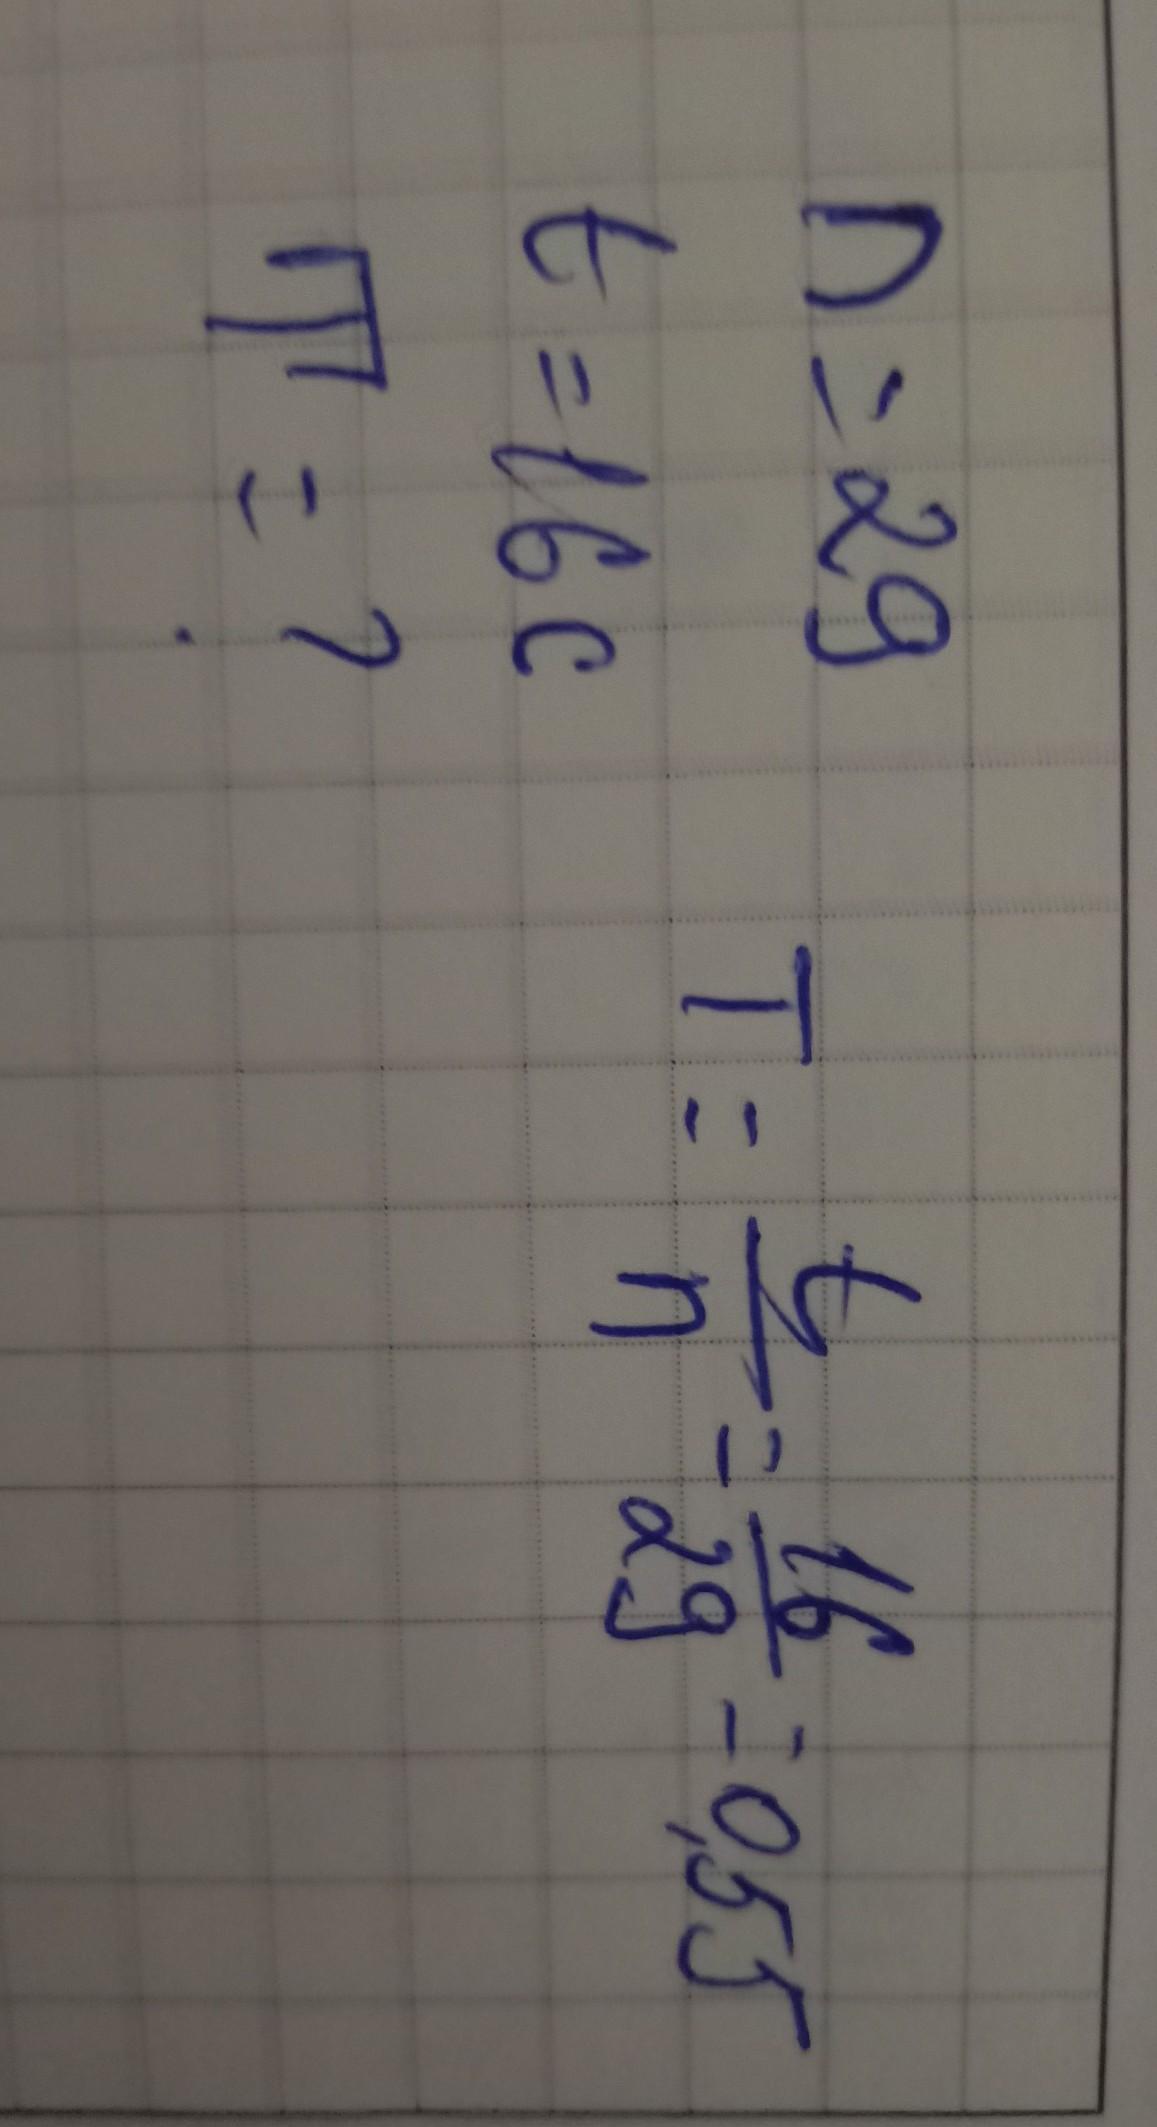 n = 29
t = 16 c
T = ?
T = t/n = 16/29 = 0,55